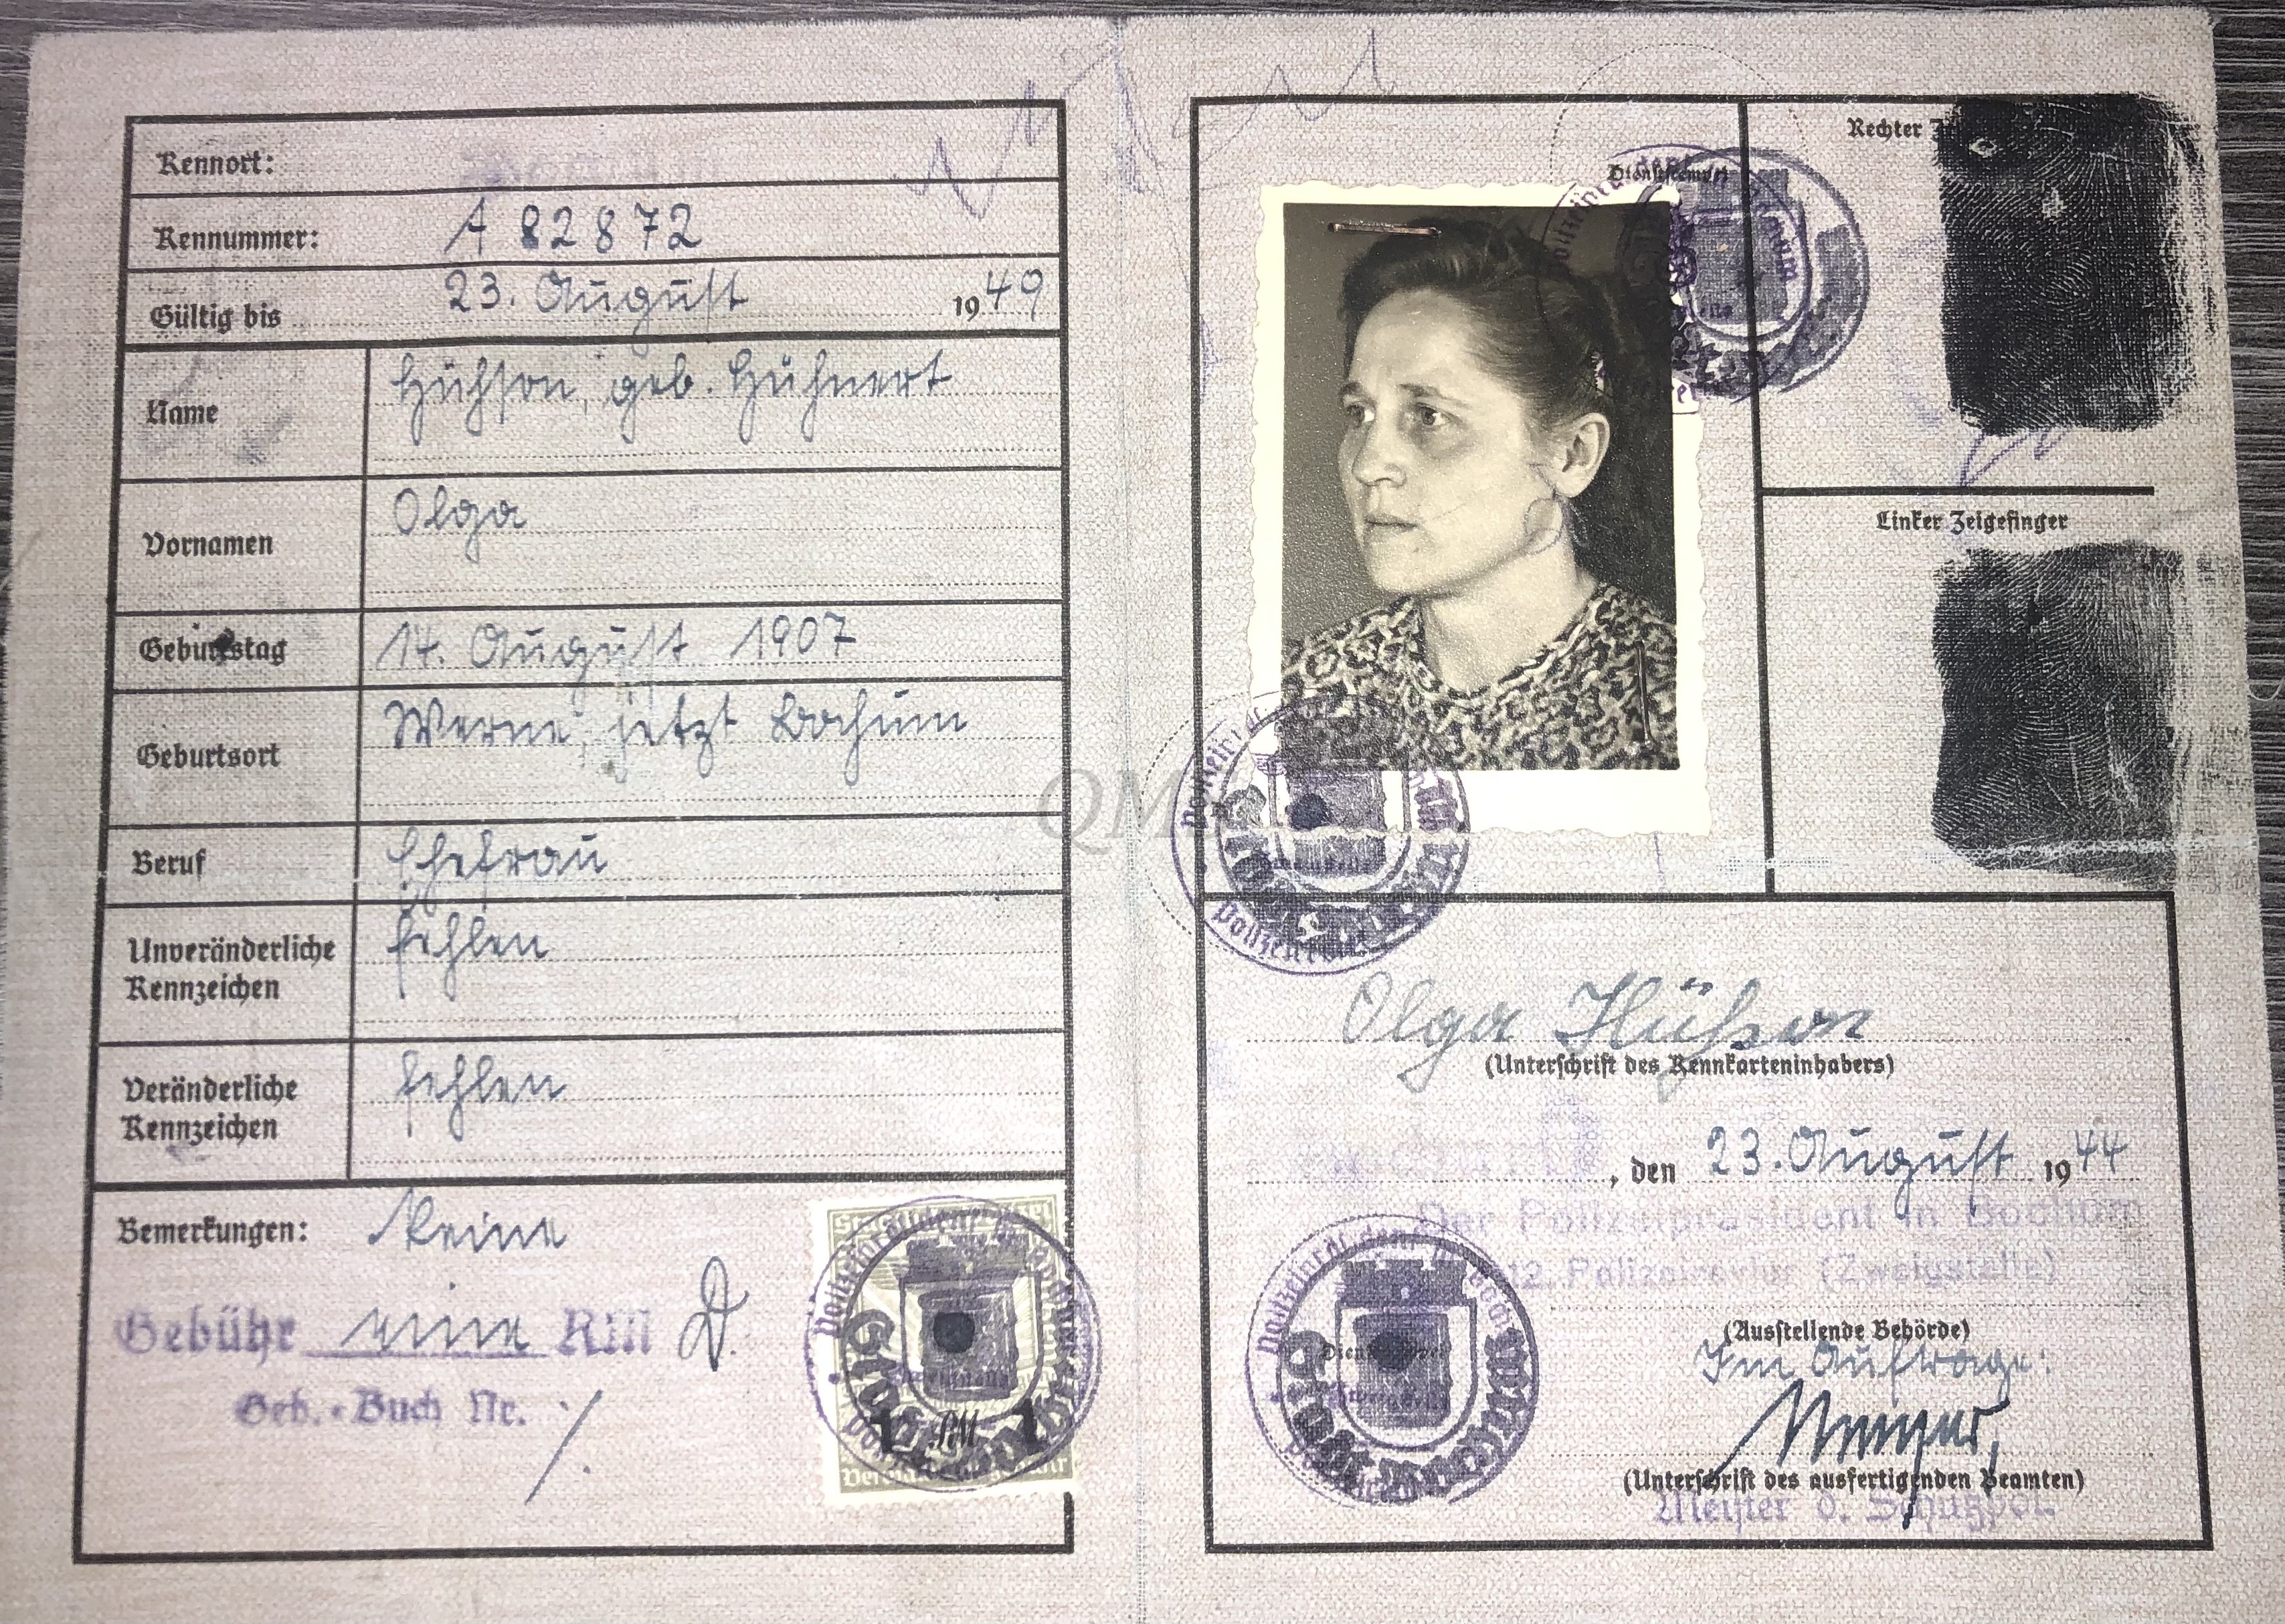 Kennort:
Kennummer: A 82872
Gültig bis 23. August 1949
Name Hühson, geb. Hühnert
Vornamen Olga
Geburtstag 14. August 1907
Geburtsort Werne, jetzt Bochum
Beruf Ehefrau
Unveränderliche
Kennzeichen fehlen
Veränderliche
Kennzeichen fehlen
Bemerkungen: Keine
Gebühr eine RM D.
Geb.-Buch Nr. /.
1 RM 1
QM
Rechter
Linker Zeigefinger
Olga Hühson
(Unterschrift des Kennkarteninhabers)
, den 23. August 1944
Der Polizeipräsident in Bochum
12. Polizeirevier (Zweigstelle)
(Ausstellende Behörde)
Im Auftrage:
(Unterschrift des ausfertigenden Beamten)
Meister d. Schutzpol.